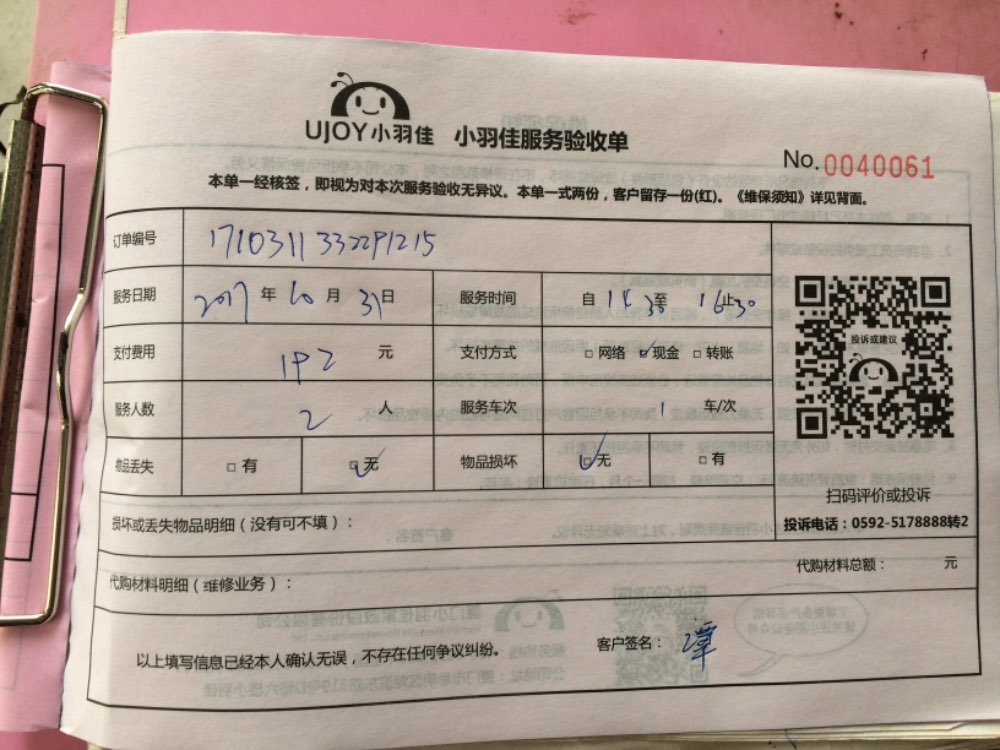 UJOY小羽佳 小羽佳服务验收单
No.0040061
本单一经核签，即视为对本次服务验收无异议。本单一式两份，客户留存一份(红)。《维保须知》详见背面。
订单编号 1710311332291215
服务日期 2017 年 10 月 31 日 服务时间 自 14 30 至 16 止 30
支付费用 192 元 支付方式 □网络 ☑现金 □转账
投诉或建议
服务人数 2 人 服务车次 1 车/次
物品丢失 □有 ☑无 物品损坏 ☑无 □有
扫码评价或投诉
损坏或丢失物品明细（没有可不填）：
投诉电话：0592-5178888转2
代购材料明细（维修业务）： 代购材料总额： 元
以上填写信息已经本人确认无误，不存在任何争议纠纷。 客户签名：